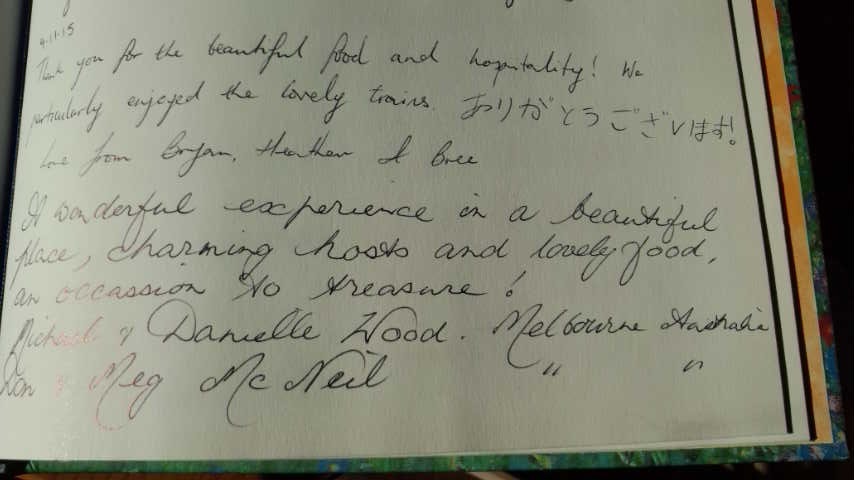 4-11-15
Thank you for the beautiful food and hospitality! We
particularly enjoyed the lovely trains. ありがとうございます!
Love from Bryan, Heather & Bree
A wonderful experience in a beautiful
place, charming hosts and lovely food,
an occassion to treasure!
Micheal & Danielle Wood. Melbourne Australia
Ron & Meg McNeil " "